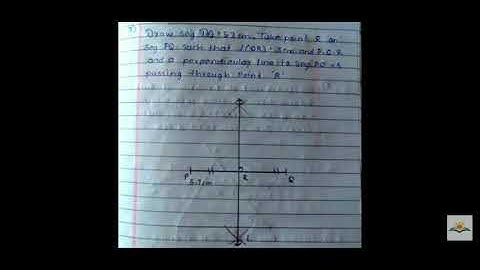 Draw seg PQ = 5.7cm. Take point R on
seg PQ such that l(QR) = 3cm and P-Q-R
and a perpendicular line to seg PQ
passing through point 'R'
P R Q
5.7cm